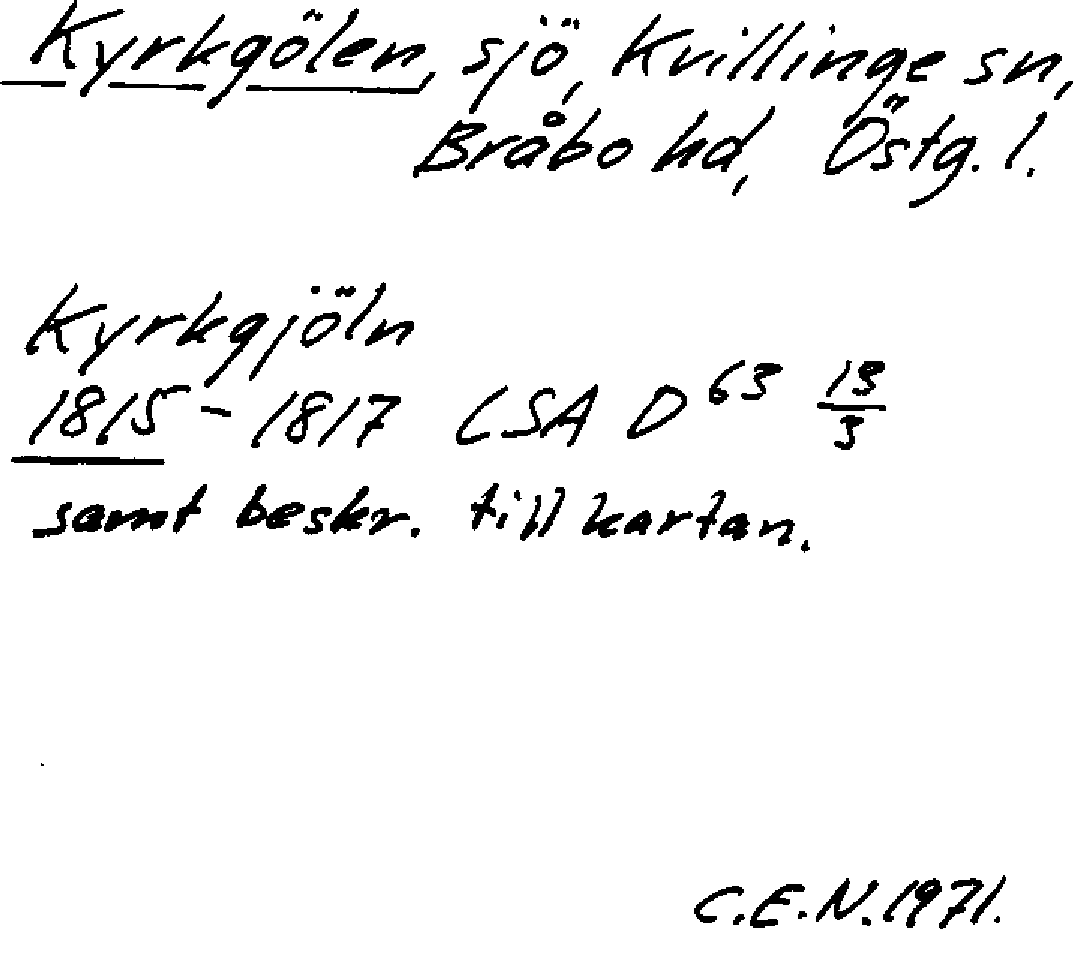 Kyrkgölen, sjö, Kvillinge sn,
Bråbo hd, Östg. l.
Kyrkgjöln
1815 - 1817 LSA D 63 13/3
samt beskr. till kartan.
C.E.N. 1971.